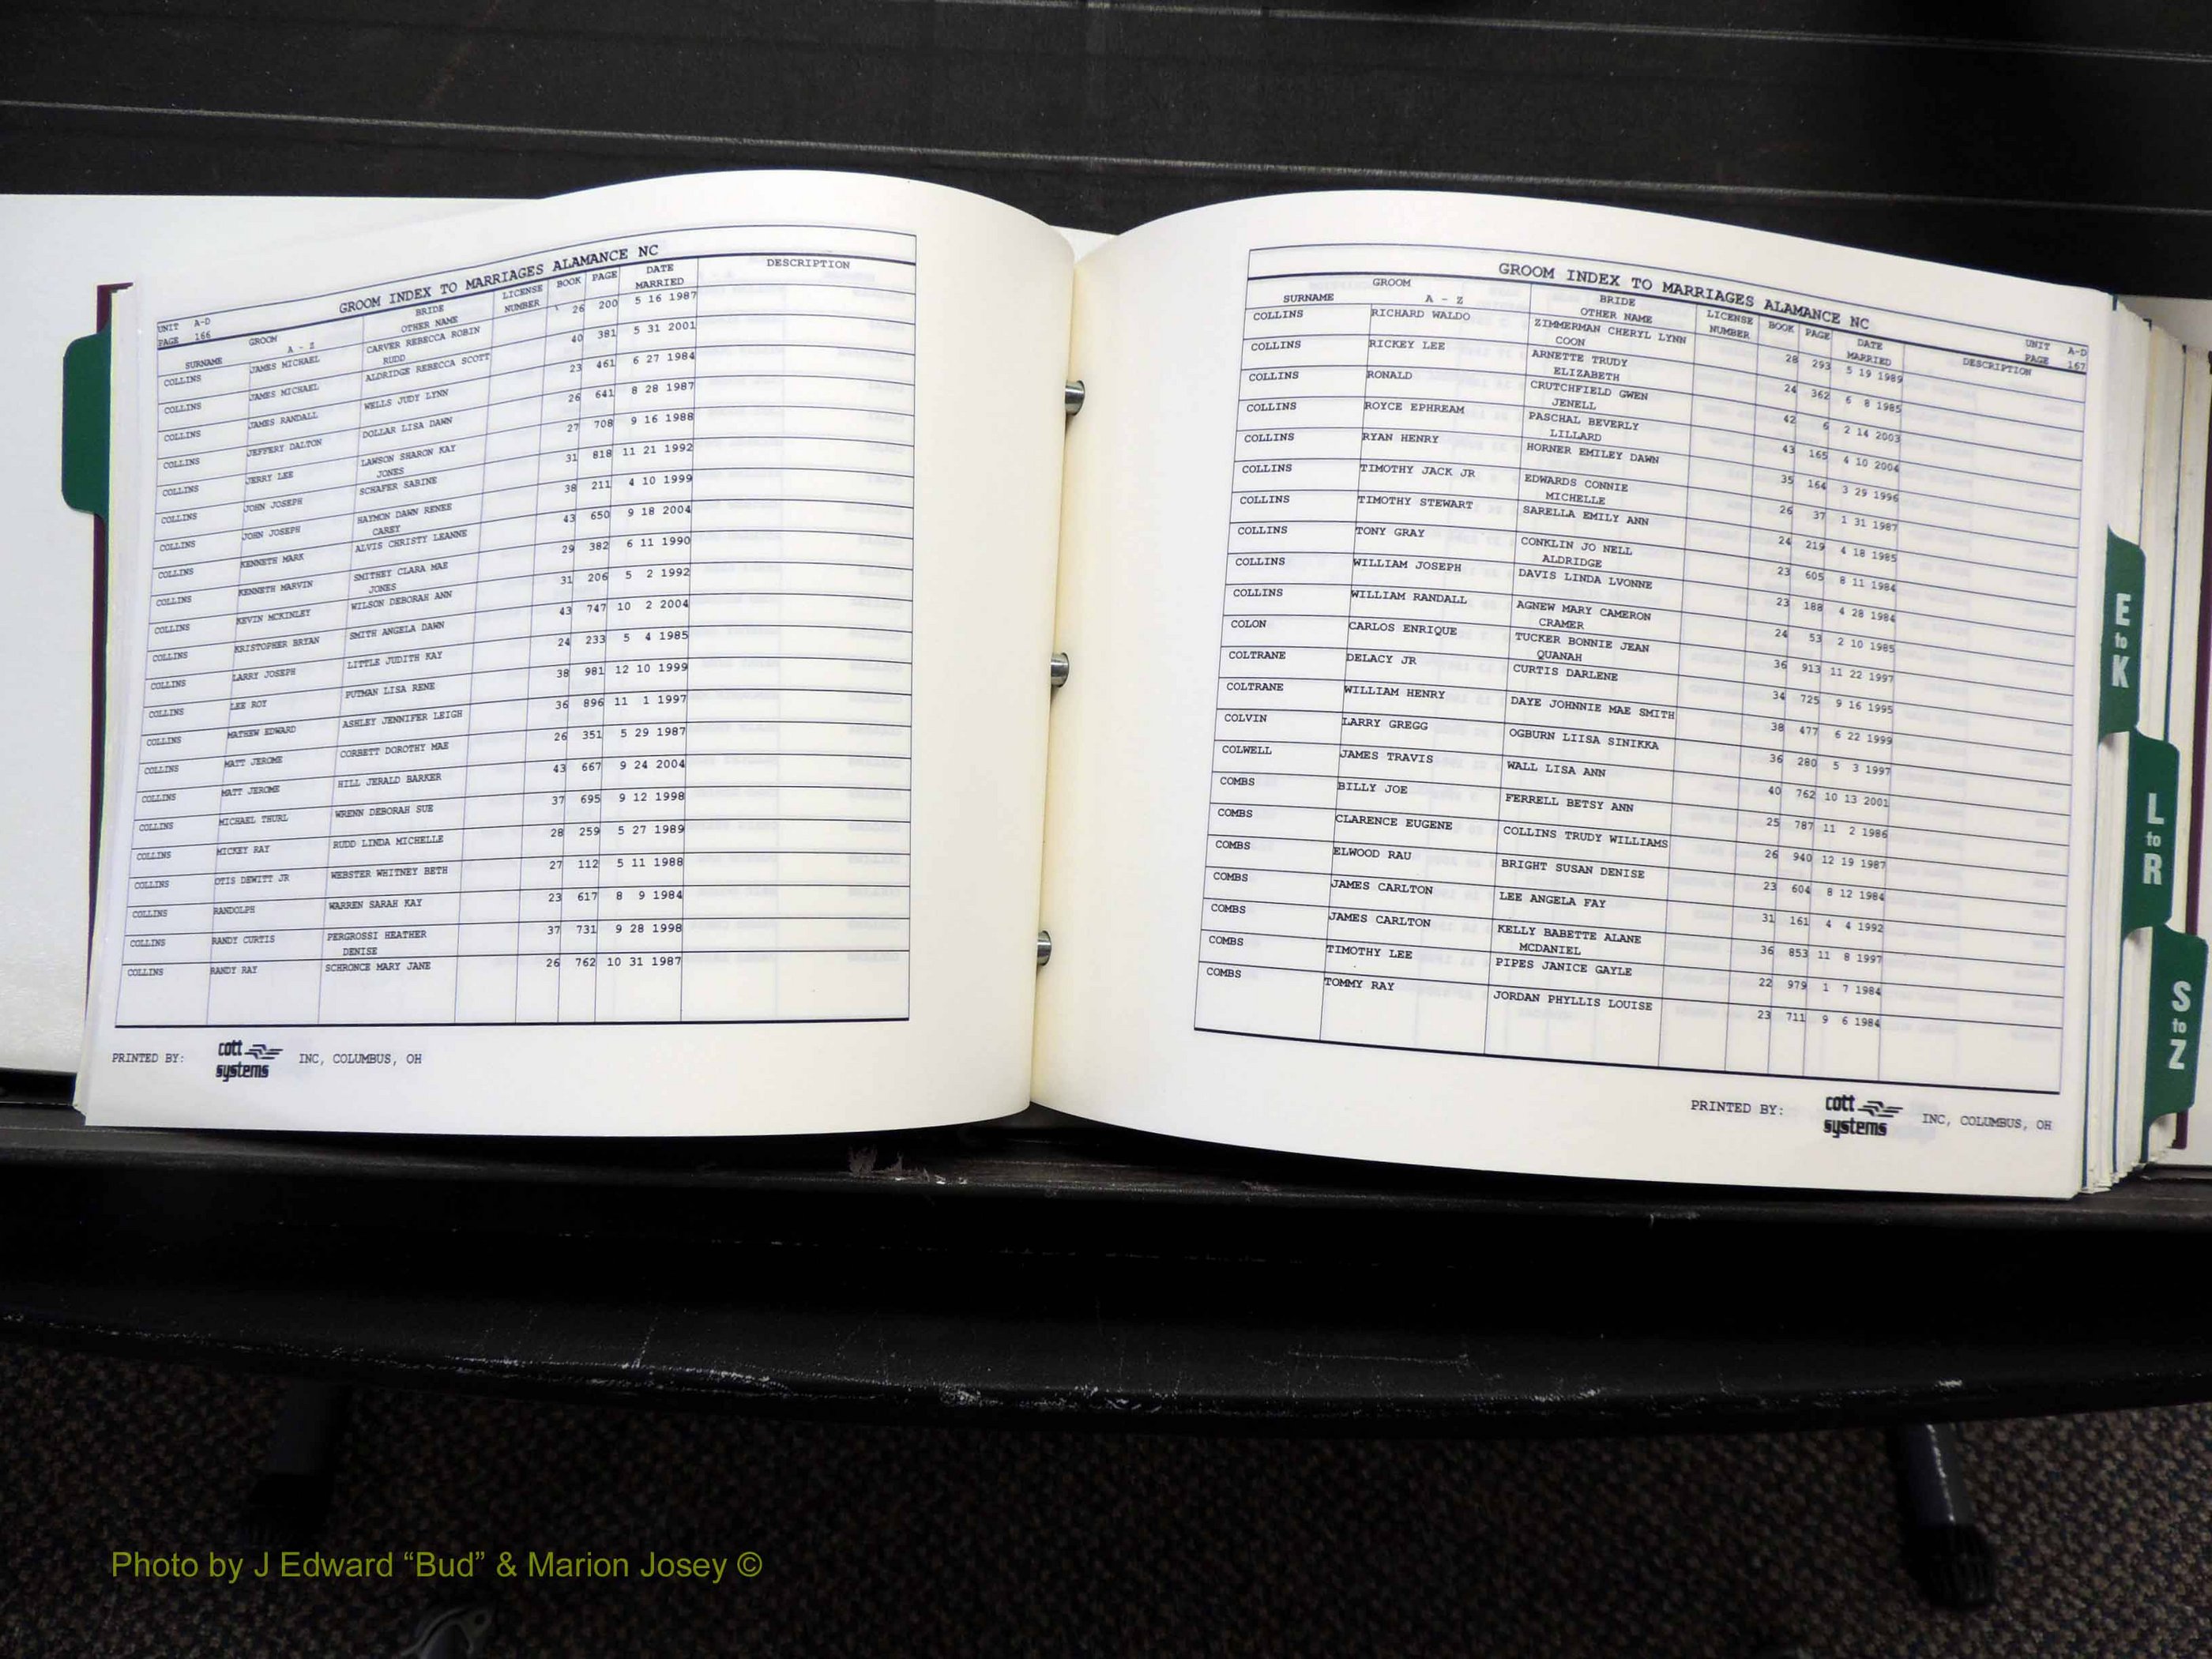 GROOM INDEX TO MARRIAGES ALAMANCE NC
UNIT A-D
PAGE 166
SURNAME GROOM A - Z BRIDE OTHER NAME LICENSE NUMBER BOOK PAGE DATE MARRIED DESCRIPTION
COLLINS JAMES MICHAEL CARVER REBECCA ROBIN 26 200 5 16 1987
RUDD
COLLINS JAMES MICHAEL ALDRIDGE REBECCA SCOTT 40 381 5 31 2001
COLLINS JAMES RANDALL WELLS JUDY LYNN 23 461 6 27 1984
COLLINS JEFFERY DALTON DOLLAR LISA DAWN 26 641 8 28 1987
COLLINS JERRY LEE LAWSON SHARON KAY 27 708 9 16 1988
JONES
COLLINS JOHN JOSEPH SCHAFER SABINE 31 818 11 21 1992
COLLINS JOHN JOSEPH HAYMON DAWN RENEE 38 211 4 10 1999
CAREY
COLLINS KENNETH MARK ALVIS CHRISTY LEANNE 43 650 9 18 2004
COLLINS KENNETH MARVIN SMITHEY CLARA MAE 29 382 6 11 1990
JONES
COLLINS KEVIN MCKINLEY WILSON DEBORAH ANN 31 206 5 2 1992
COLLINS KRISTOPHER BRYAN SMITH ANGELA DAWN 43 747 10 2 2004
COLLINS LARRY JOSEPH LITTLE JUDITH KAY 24 233 5 4 1985
COLLINS LEE ROY PUTMAN LISA RENE 38 981 12 10 1999
COLLINS MATHEW EDWARD ASHLEY JENNIFER LEIGH 36 896 11 1 1997
COLLINS MATT JEROME CORBETT DOROTHY MAE 26 351 5 29 1987
COLLINS MATT JEROME HILL JERALD BARKER 43 667 9 24 2004
COLLINS MICHAEL THURL WRENN DEBORAH SUE 37 695 9 12 1998
COLLINS MICKEY RAY RUDD LINDA MICHELLE 28 259 5 27 1989
COLLINS OTIS DEWITT JR WEBSTER WHITNEY BETH 27 112 5 11 1988
COLLINS RANDOLPH WARREN SARAH KAY 23 617 8 9 1984
COLLINS RANDY CURTIS PERGROSSI HEATHER 37 731 9 28 1998
DENISE
COLLINS RANDY RAY SCHRONCE MARY JANE 26 762 10 31 1987
PRINTED BY: cott systems INC, COLUMBUS, OH
GROOM INDEX TO MARRIAGES ALAMANCE NC
UNIT A-D
PAGE 167
SURNAME GROOM A - Z BRIDE OTHER NAME LICENSE NUMBER BOOK PAGE DATE MARRIED DESCRIPTION
COLLINS RICHARD WALDO ZIMMERMAN CHERYL LYNN 28 293 5 19 1989
COON
COLLINS RICKEY LEE ARNETTE TRUDY 24 362 6 8 1985
ELIZABETH
COLLINS RONALD CRUTCHFIELD GWEN 42 6 2 14 2003
JENELL
COLLINS ROYCE EPHREAM PASCHAL BEVERLY 43 165 4 10 2004
LILLARD
COLLINS RYAN HENRY HORNER EMILEY DAWN 35 164 3 29 1996
COLLINS TIMOTHY JACK JR EDWARDS CONNIE 26 37 1 31 1987
MICHELLE
COLLINS TIMOTHY STEWART SARELLA EMILY ANN 24 219 4 18 1985
COLLINS TONY GRAY CONKLIN JO NELL 23 605 8 11 1984
ALDRIDGE
COLLINS WILLIAM JOSEPH DAVIS LINDA LVONNE 23 188 4 28 1984
COLLINS WILLIAM RANDALL AGNEW MARY CAMERON 24 53 2 10 1985
CRAMER
COLON CARLOS ENRIQUE TUCKER BONNIE JEAN 36 913 11 22 1997
QUANAH
COLTRANE DELACY JR CURTIS DARLENE 34 725 9 16 1995
COLTRANE WILLIAM HENRY DAYE JOHNNIE MAE SMITH 38 477 6 22 1999
COLVIN LARRY GREGG OGBURN LIISA SINIKKA 36 280 5 3 1997
COLWELL JAMES TRAVIS WALL LISA ANN 40 762 10 13 2001
COMBS BILLY JOE FERRELL BETSY ANN 25 787 11 2 1986
COMBS CLARENCE EUGENE COLLINS TRUDY WILLIAMS 26 940 12 19 1987
COMBS ELWOOD RAU BRIGHT SUSAN DENISE 23 604 8 12 1984
COMBS JAMES CARLTON LEE ANGELA FAY 31 161 4 4 1992
COMBS JAMES CARLTON KELLY BABETTE ALANE 36 853 11 8 1997
MCDANIEL
COMBS TIMOTHY LEE PIPES JANICE GAYLE 22 979 1 7 1984
COMBS TOMMY RAY JORDAN PHYLLIS LOUISE 23 711 9 6 1984
PRINTED BY: cott systems INC, COLUMBUS, OH
E to K
L to R
S to Z
Photo by J Edward “Bud” & Marion Josey ©